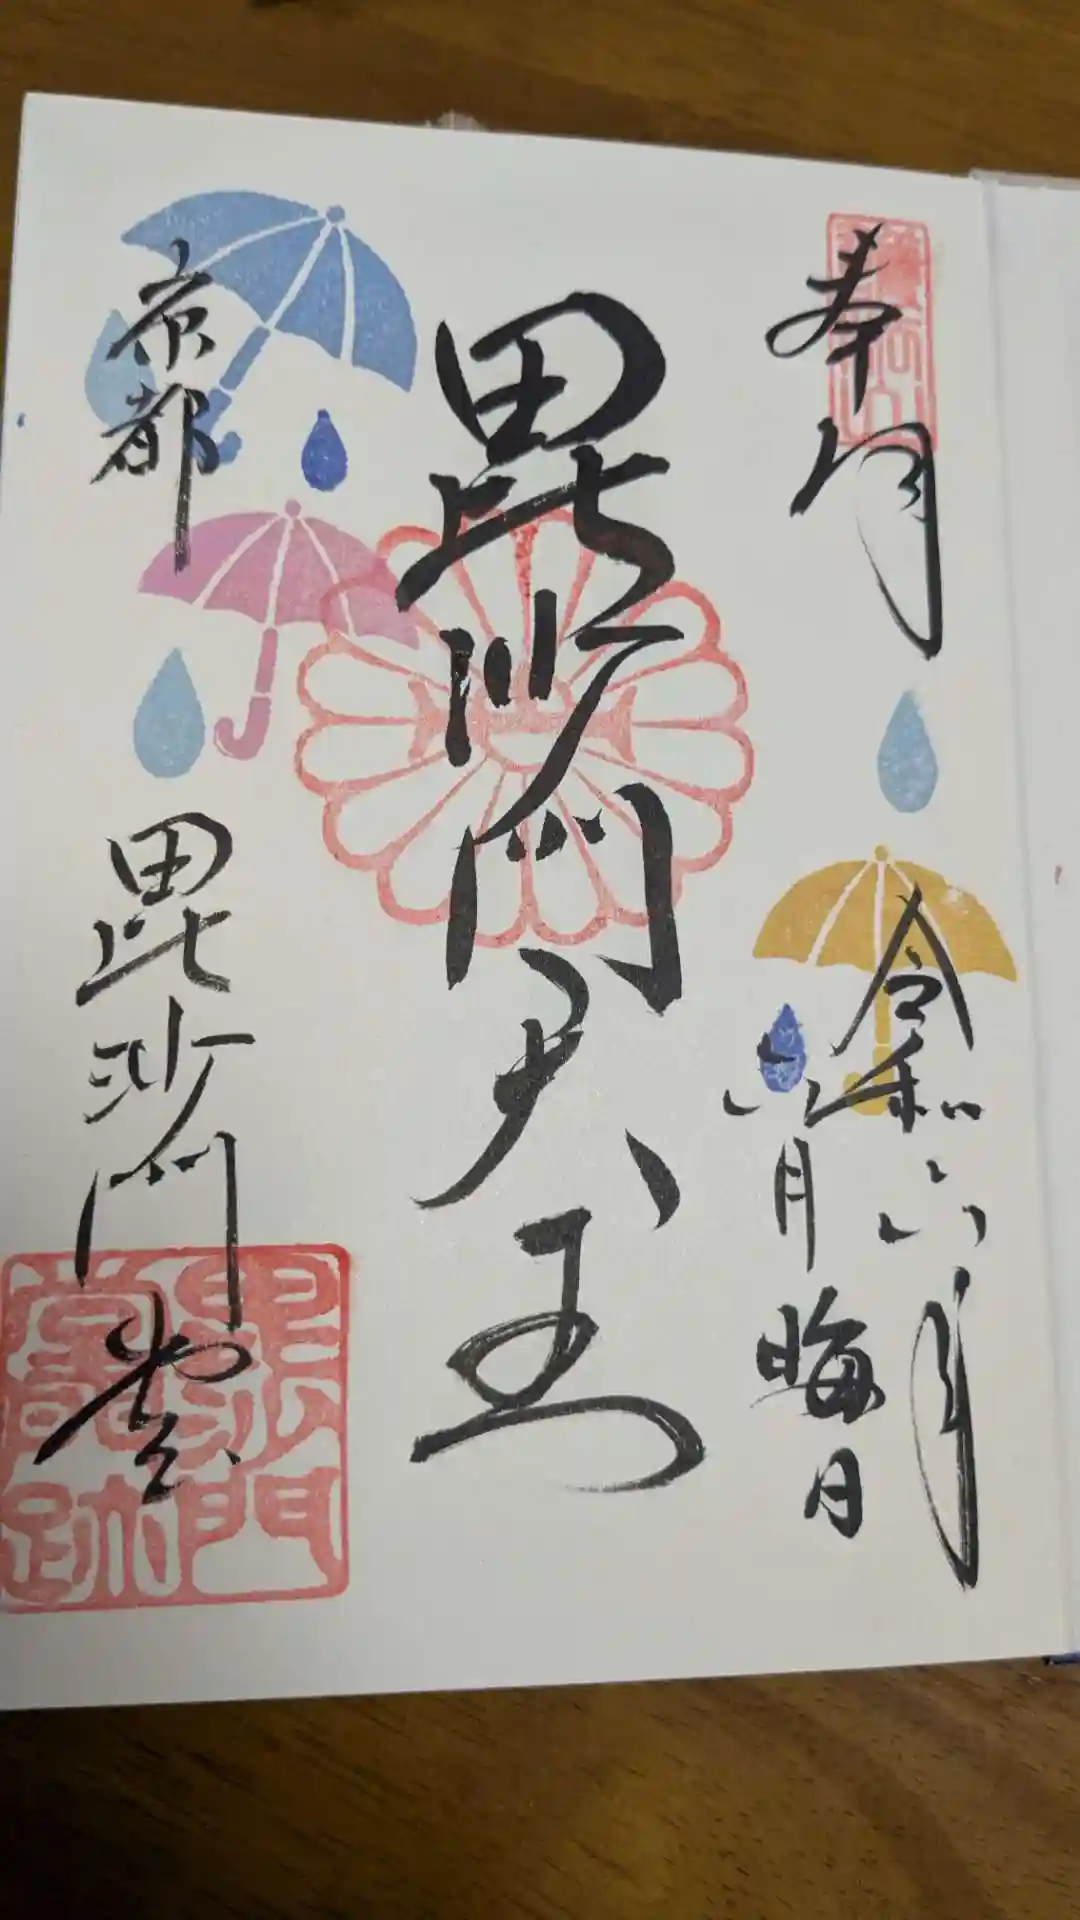 奉拝
令和六年
六月晦日
毘沙門天王
京都
毘沙門堂
毘沙門堂跡